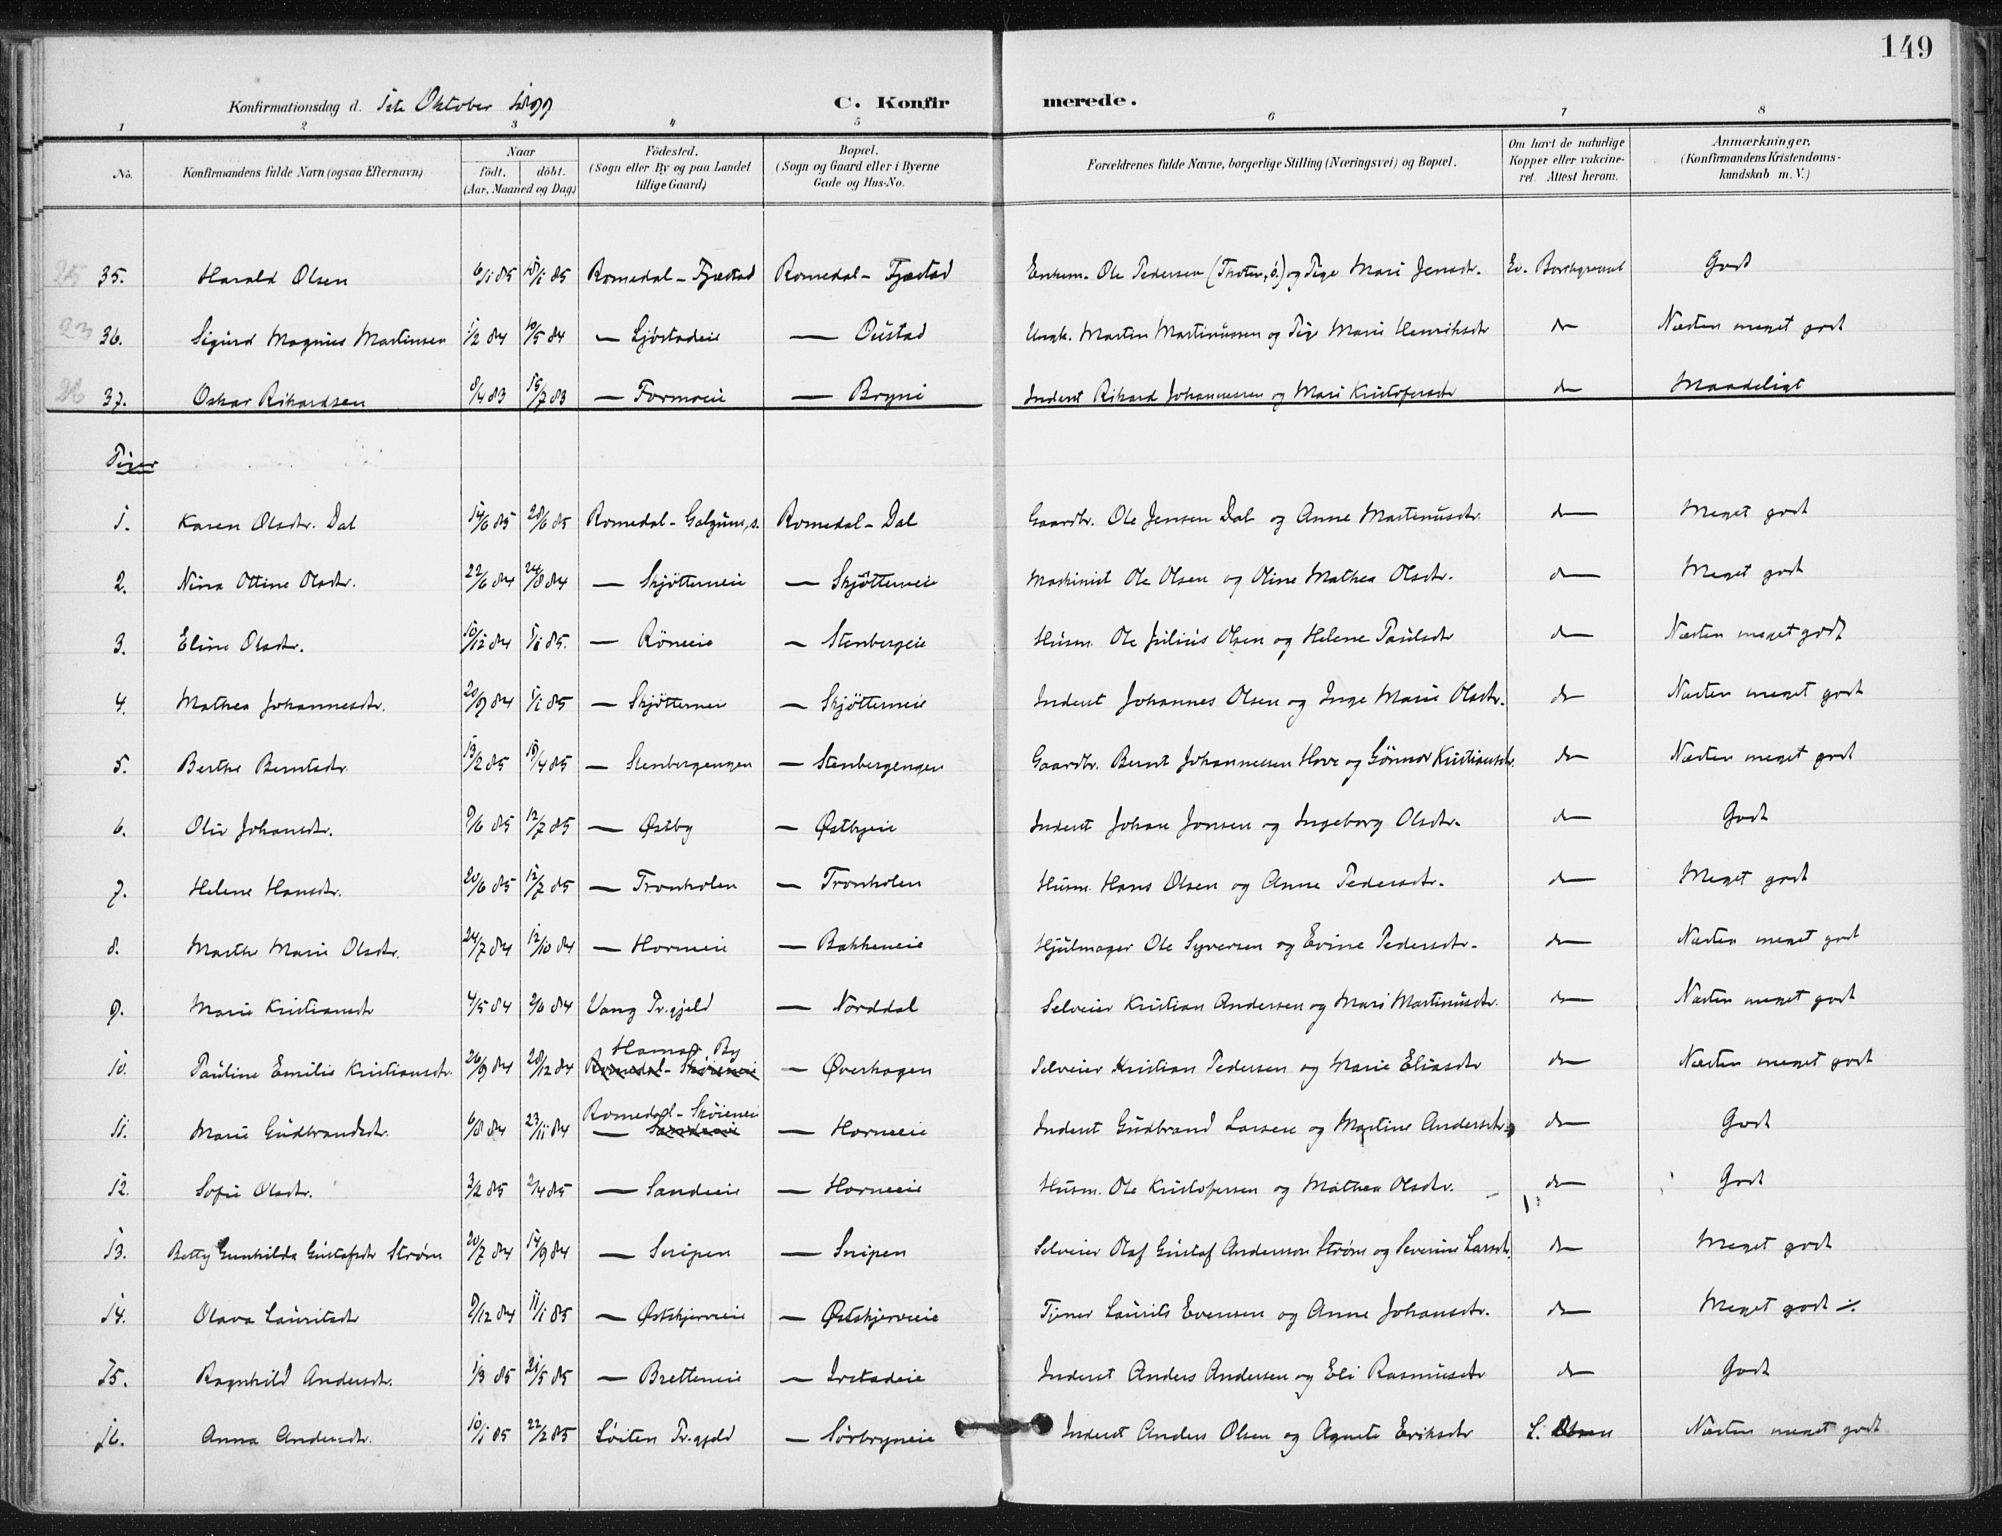 149
Konfirmationsdag d. 1ste Oktober 1899
C. Konfirmerede.
1 2 3 4 5 6 7 8
No. Konfirmandens fulde Navn (ogsaa Efternavn) Naar født. døbt. (Aar, Maaned og Dag) Fødested. (Sogn eller By og paa Landet tillige Gaard) Bopæl. (Sogn og Gaard eller i Byerne Gade og Hus-No. Forældrenes fulde Navne, borgerlige Stilling (Næringsvei) og Bopæl. Om havt de naturlige Kopper eller vakcineret. Attest herom. Anmærkninger. (Konfirmandens Kristendomskundskab m. V.)
25 35. Harald Olsen 6/1 85 18/1 85 Romedal - Fjæstad Romedal - Fjæstad Enkem. Ole Pedersen (Thoten, ö.) og Pige Mari Jensdtr. Ev. Borchgrevink Godt
23 36. Sigurd Magnus Martinsen 1/2 84 10/5 84 — Ljøstadeie — Oustad Ungk. Martin Martinussen og Pige Marie Henriksdtr do Næsten meget godt
26 37. Oskar Rikardsen 8/4 83 15/7 83 — Formoeie — Bryni Inderst Rikard Johannessen og Mari Kristofersdtr do Maadeligt
Piger
1. Karen Olsdtr. Dal 14/6 85 28/6 85 Romedal - Galgum, s. Romedal - Dal Gaardbr. Ole Jensen Dal og Anne Martinusdtr. do Meget godt
2. Nina Ottine Olsdtr. 22/6 84 24/8 84 — Skjötterneie — Skjötterneie Maskinist Ole Olsen og Oline Mathea Olsdtr. do Meget godt
3. Eline Olsdtr. 10/12 84 1/1 85. — Röneie — Stenbergeie Husm. Ole Julius Olsen og Helene Paulsdtr do Næsten meget godt
4. Mathea Johannesdtr. 20/9 84 1/1 85 — Skjötterneie — Skjötterneie Inderst Johannes Olsen og Inge Marie Olsdtr. do Næsten meget godt
5. Berthe Berntsdtr. 13/2 85 19/4 85 — Stenbergengen — Stenbergengen Gaardbr. Bernt Johannessen Hove og Gunnor Kristiansdtr. do Næsten meget godt
6. Oliv Johansdtr. 9/6 85 12/7 85 — Østby — Østbyeie Inderst Johan Jonsen og Ingeborg Olsdtr. do Godt
7. Helene Hansdtr. 20/6 85 12/7 85 — Tronholen — Tronholen Husm. Hans Olsen og Anne Pedersdtr. do Meget godt
8. Marthe Marie Olsdtr. 24/7 84 12/10 84 — Horneeie — Bakkeneie Hjulmager Ole Syversen og Evine Pedersdtr. do Næsten meget godt
9. Marie Kristiansdtr 4/5 84 2/6 84 Vang Pr.gjeld — Norddal Selveier Kristian Andersen og Mari Martinusdtr. do Næsten meget godt
10. Pauline Emilie Kristiansdtr. 26/9 84 28/12 84 Hamar By — Øverhagen Selveier Kristian Pedersen og Marie Eliasdtr do Næsten meget godt
11. Marie Gudbrandsdtr. 6/8 84 23/11 84 Romedal - Skøieneie — Horneeie Inderst Gudbrand Larsen og Martine Andersdtr. do Godt
12. Sofie Olsdtr. 3/2 85 2/4 85 — Sandeeie — Horneeie Husm. Ole Kristofersen og Mathea Olsdtr. do Godt
13. Betty Gunhilda Gustafsdtr Strøm 20/7 84 14/9 84 — Snipen — Snipen Selveier Olaf Gustaf Anderson Strøm og Severine Larsdtr. do Meget godt
14. Olava Lauritsdtr 9/12 84 11/1 85 — Østskjerveie — Østskjerveie Tjener Laurits Evensen og Anne Johansdtr. do Meget godt
15. Ragnhild Andersdtr. 1/3 85 21/5 85 — Bretteneie — Irstadeie Inderst Anders Andersen og Eli Rasmusdtr do Godt
16. Anna Andersdtr. 10/1 85 22/2 85 Løiten Pr.gjeld — Sørbryneie Inderst Anders Olsen og Agnete Eriksdtr L. Næsten meget godt